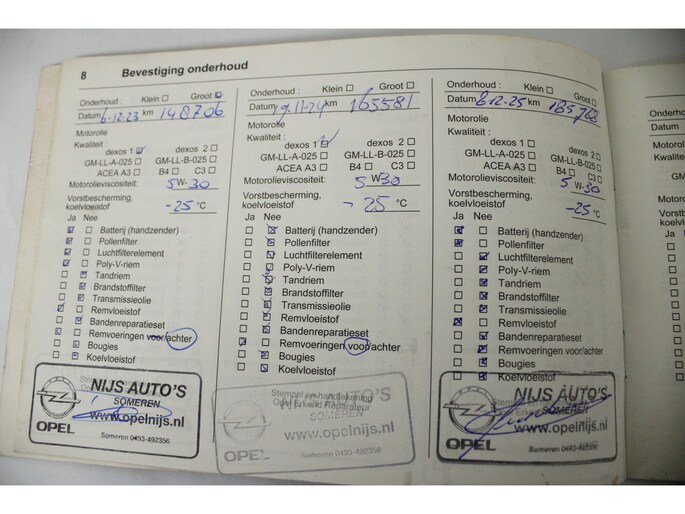 8 Bevestiging onderhoud
Onderhoud : Klein Groot
Datum 6-12-23 km 148706
Motorolie
Kwaliteit :
dexos 1 dexos 2
GM-LL-A-025 GM-LL-B-025
ACEA A3 B4 C3
Motorolieviscositeit: 5 W-30
Vorstbescherming,
koelvloeistof -25 °C
Ja Nee
Batterij (handzender)
Pollenfilter
Luchtfilterelement
Poly-V-riem
Tandriem
Brandstoffilter
Transmissieolie
Remvloeistof
Bandenreparatieset
Remvoeringen voor/achter
Bougies
Koelvloeistof
NIJS AUTO'S
SOMEREN
www.opelnijs.nl
OPEL
Someren 0493-492356
Onderhoud : Klein Groot
Datum 19-11-24 km 165581
Motorolie
Kwaliteit :
dexos 1 dexos 2
GM-LL-A-025 GM-LL-B-025
ACEA A3 B4 C3
Motorolieviscositeit: 5 W 30
Vorstbescherming,
koelvloeistof - 25 °C
Ja Nee
Batterij (handzender)
Pollenfilter
Luchtfilterelement
Poly-V-riem
Tandriem
Brandstoffilter
Transmissieolie
Remvloeistof
Bandenreparatieset
Remvoeringen voor/achter
Bougies
Koelvloeistof
Stempel en handtekening
Opel Erkend Reparateur
SOMEREN
www.opelnijs.nl
OPEL
Someren 0493-492356
Onderhoud : Klein Groot
Datum 8-12-25 km 185768
Motorolie
Kwaliteit :
dexos 1 dexos 2
GM-LL-A-025 GM-LL-B-025
ACEA A3 B4 C3
Motorolieviscositeit: 5 W-30
Vorstbescherming,
koelvloeistof -25 °C
Ja Nee
Batterij (handzender)
Pollenfilter
Luchtfilterelement
Poly-V-riem
Tandriem
Brandstoffilter
Transmissieolie
Remvloeistof
Bandenreparatieset
Remvoeringen voor/achter
Bougies
Koelvloeistof
NIJS AUTO'S
SOMEREN
www.opelnijs.nl
OPEL
Someren 0493-492356
Onderhoud
Datum
Motorolie
Kwaliteit
GM-LL
Motorolie
Vorstbes
koelvloe
Ja Ne